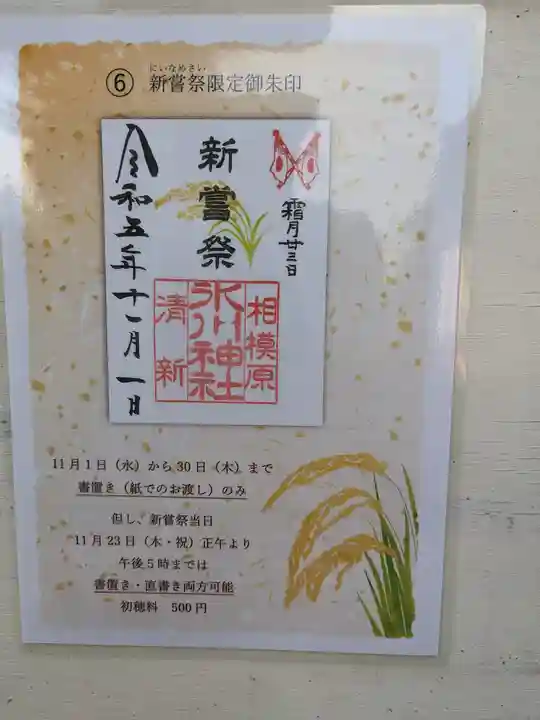 にいなめさい
⑥ 新嘗祭限定御朱印
霜月廿三日
新嘗祭
令和五年十一月一日
相模原
氷川神社
清新
11月1日（水）から30日（木）まで
書置き（紙でのお渡し）のみ
但し、新嘗祭当日
11月23日（木・祝）正午より
午後5時までは
書置き・直書き両方可能
初穂料　500円